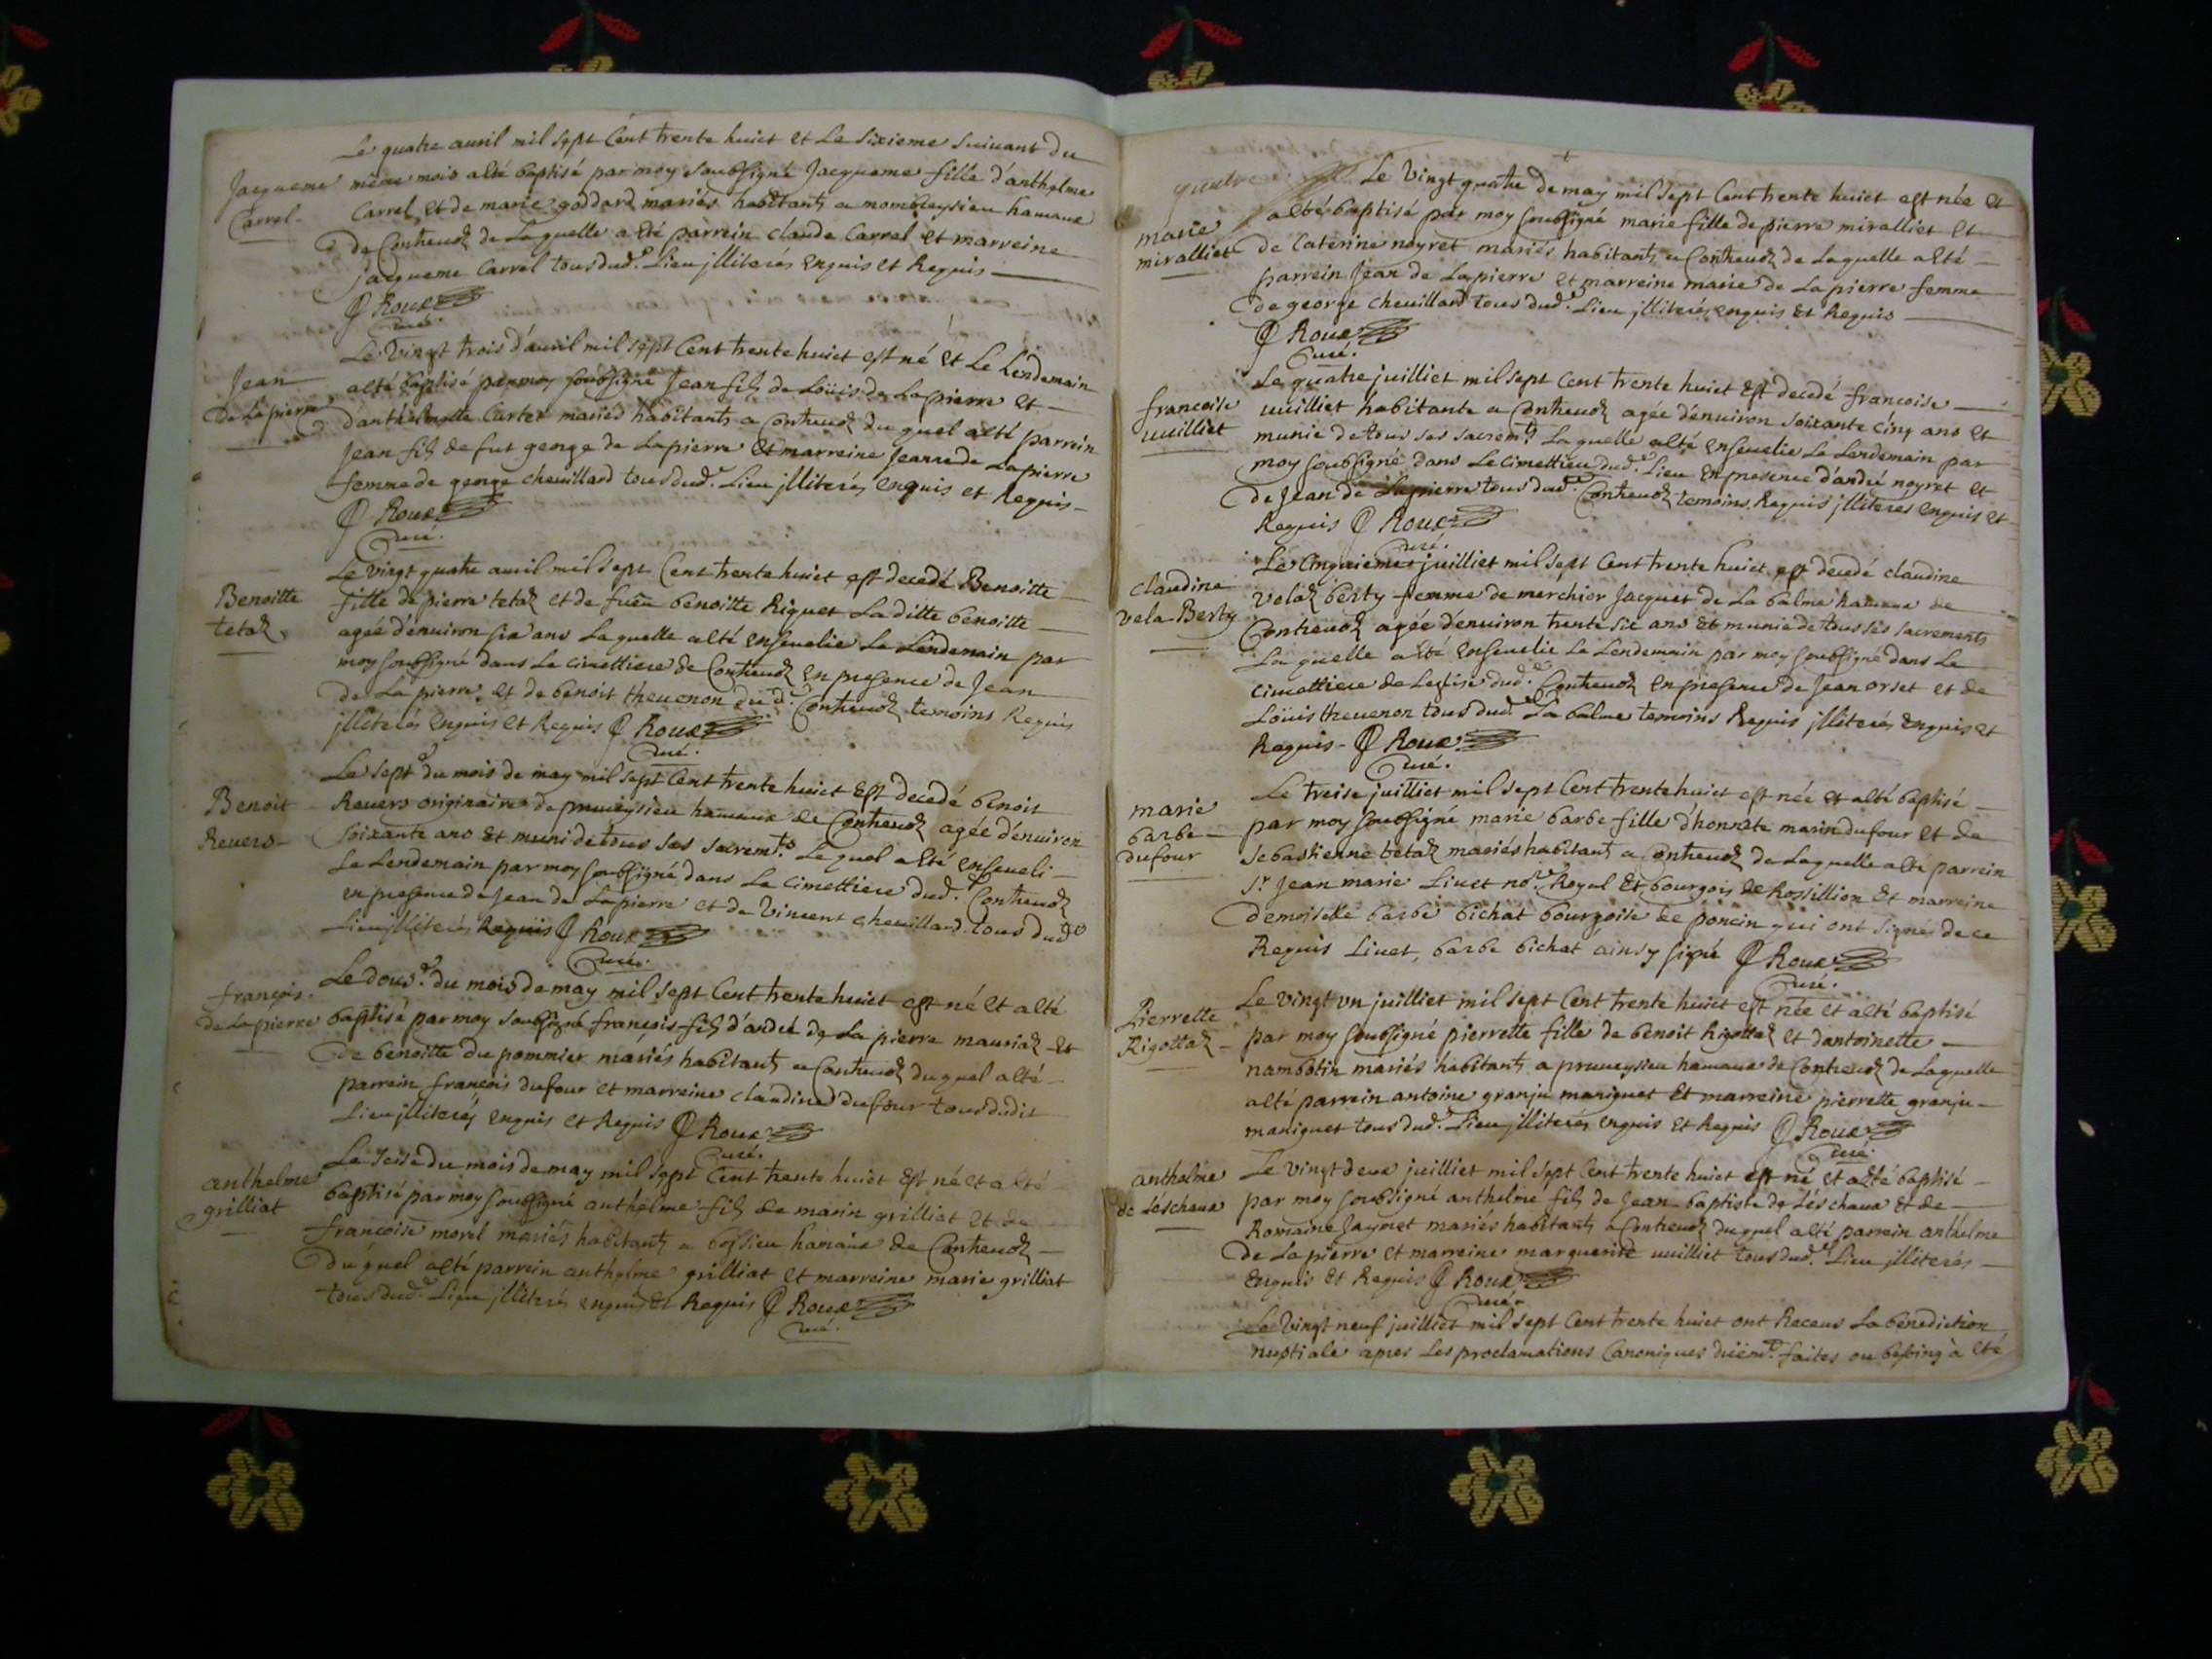 Le quatre auril mil sept Cent trente huict et Le sixieme suiuant du
Jacqueme
Carrel
même mois alté baptisé par moy soubsigné Jacqueme fille d'anthelme
Carrel et de marie goddard mariés habitants a
hamaux
de Contreuoz de Laquelle a été parrein claude Carrel et marreine
jacqueme Carrel tous dud.e Lieu jlliterés enquis et Requis
Roux
Curé.
Le vingt trois d'auril mil sept Cent trente huict est né et Le Lendemain
Jean
De Lapierre
alté baptisé par moy soubsigné Jean fils de Loüis de Lapierre et
d'anthelmette Carter mariés habitants a Contreuoz du quel alté parrein
Jean fils de fut george de Lapierre et marreine Jeanne de Lapierre
femme de george cheuillard tous dud.e Lieu jlliterés enquis et Requis
Roux
Curé.
Le vingt quatre auril mil sept Cent trente huict est decedé Benoitte
Benoitte
tetaz
fille de pierre tetaz et de benoitte Riquet La ditte benoitte
agée d'enuiron six ans Laquelle alté enseuelie Le Lendemain par
moy soubsigné dans Le cimettiere de Contreuoz en presence de Jean
de La pierre et de benoit theuenon dud.e Contreuoz temoins Requis
jlliterés enquis et Requis Roux
Curé.
Le sept.e du mois de may mil sept Cent trente huict est decedé benoit
Benoit
Reuers
Reuers originaire de preueysieu hamaux de Contreuoz agée d'enuiron
soixante ans et muni de tous ses sacrem.ts Le quel alté enseueli
Le Lendemain par moy soubsigné dans Le cimettiere dud.e Contreuoz
en presence de Jean de Lapierre et de Vincent cheuillard tous dud.e
Lieu jlliterés Requis Roux
Curé.
Le dous.e du mois de may mil sept Cent trente huict est né et alté
françois
de Lapierre
baptisé par moy soubsigné françois fils d'andré de La pierre mauriaz et
de benoitte du pommier mariés habitants a Contreuoz du quel alté
parrein françois dufour et marreine claudine dufour tous dudit
Lieu jlliterés enquis et Requis Roux
Curé.
Le seise du mois de may mil sept Cent trente huict est né et alté
anthelme
grilliat
baptisé par moy soubsigné anthelme fils de marin grilliat et de
françoise morel mariés habitants a bossieu hamaux de Contreuoz
du quel alté parrein anthelme grilliat et marreine marie grilliat
tous dud.e Lieu jlliterés enquis et Requis Roux
Curé.
Le vingt quatre de may mil sept Cent trente huict est née et
marie
miralliet
alté baptisé par moy soubsigné marie fille de pierre miralliet et
de Caterine noyret mariés habitants a Contreuoz de Laquelle alté
parrein Jean de Lapierre et marreine marie de La pierre femme
de george cheuillard tous dud.e Lieu jlliterés enquis et Requis
Roux
Curé.
Le quatre juilliet mil sept Cent trente huict est decedé françoise
françoise
uuilliet
uuilliet habitante a Contreuoz agée d'enuiron soixante cinq ans et
munie de tous ses sacrem.ts Laquelle alté enseuelie Le Lendemain par
moy soubsigné dans Le cimettiere dud.e Lieu en presence d'andré noyret et
de Jean de Lapierre tous dud.e Contreuoz temoins Requis jlliterés enquis et
Requis Roux
Curé.
Le Cinquieme juilliet mil sept Cent trente huict est decedé claudine
claudine
vela Berty
velaz berty femme de merchior Jacquet de La balme hamaux de
Contreuoz agée d'enuiron trente six ans et munie de tous ses sacrements
La quelle a été enseuelie Le Lendemain par moy soubsigné dans Le
cimettiere de Leglise dud.e Contreuoz en presence de Jean orset et de
Loüis theuenon tous dud.e La balme temoins Requis jlliterés enquis et
Requis Roux
Curé.
Le treise juilliet mil sept Cent trente huict est née et alté baptisé
marie
barbe
dufour
par moy soubsigné marie barbe fille d'honnete marin dufour et de
sebastienne tetaz mariés habitants a Contreuoz de Laquelle alté parrein
Sr Jean marie Liuet no.re Royal et bourgois de Rossillion et marreine
Demoiselle barbe bichat bourgoise de poncin qui ont signés de ce
Requis Liuet, barbe bichat ainsy signé Roux
Curé.
Le vingt vn juilliet mil sept Cent trente huict est née et alté baptisé
Pierrette
Rigottaz
par moy soubsigné pierrette fille de benoit Rigottaz et d'antoinette
nambotin mariés habitants a preueysieu hamaux de Contreuoz de Laquelle
alté parrein antoine granju maniguet et marreine pierrette granju
maniguet tous dud.e Lieu jlliterés enquis et Requis Roux
Curé.
Le vingt deux juilliet mil sept Cent trente huict est né et alté baptisé
anthelme
de Léschaux
par moy soubsigné anthelme fils de Jean baptiste de Léschaux et de
Romaine Jaynet mariés habitants a Contreuoz du quel alté parrein anthelme
de La pierre et marreine marguerite uuilliet tous dud.e Lieu jlliterés
enquis et Requis Roux
Curé.
Le vingt neuf juilliet mil sept Cent trente huict ont Receus La benediction
nuptiale apres Les proclamations Canoniques faites ou besoing à été